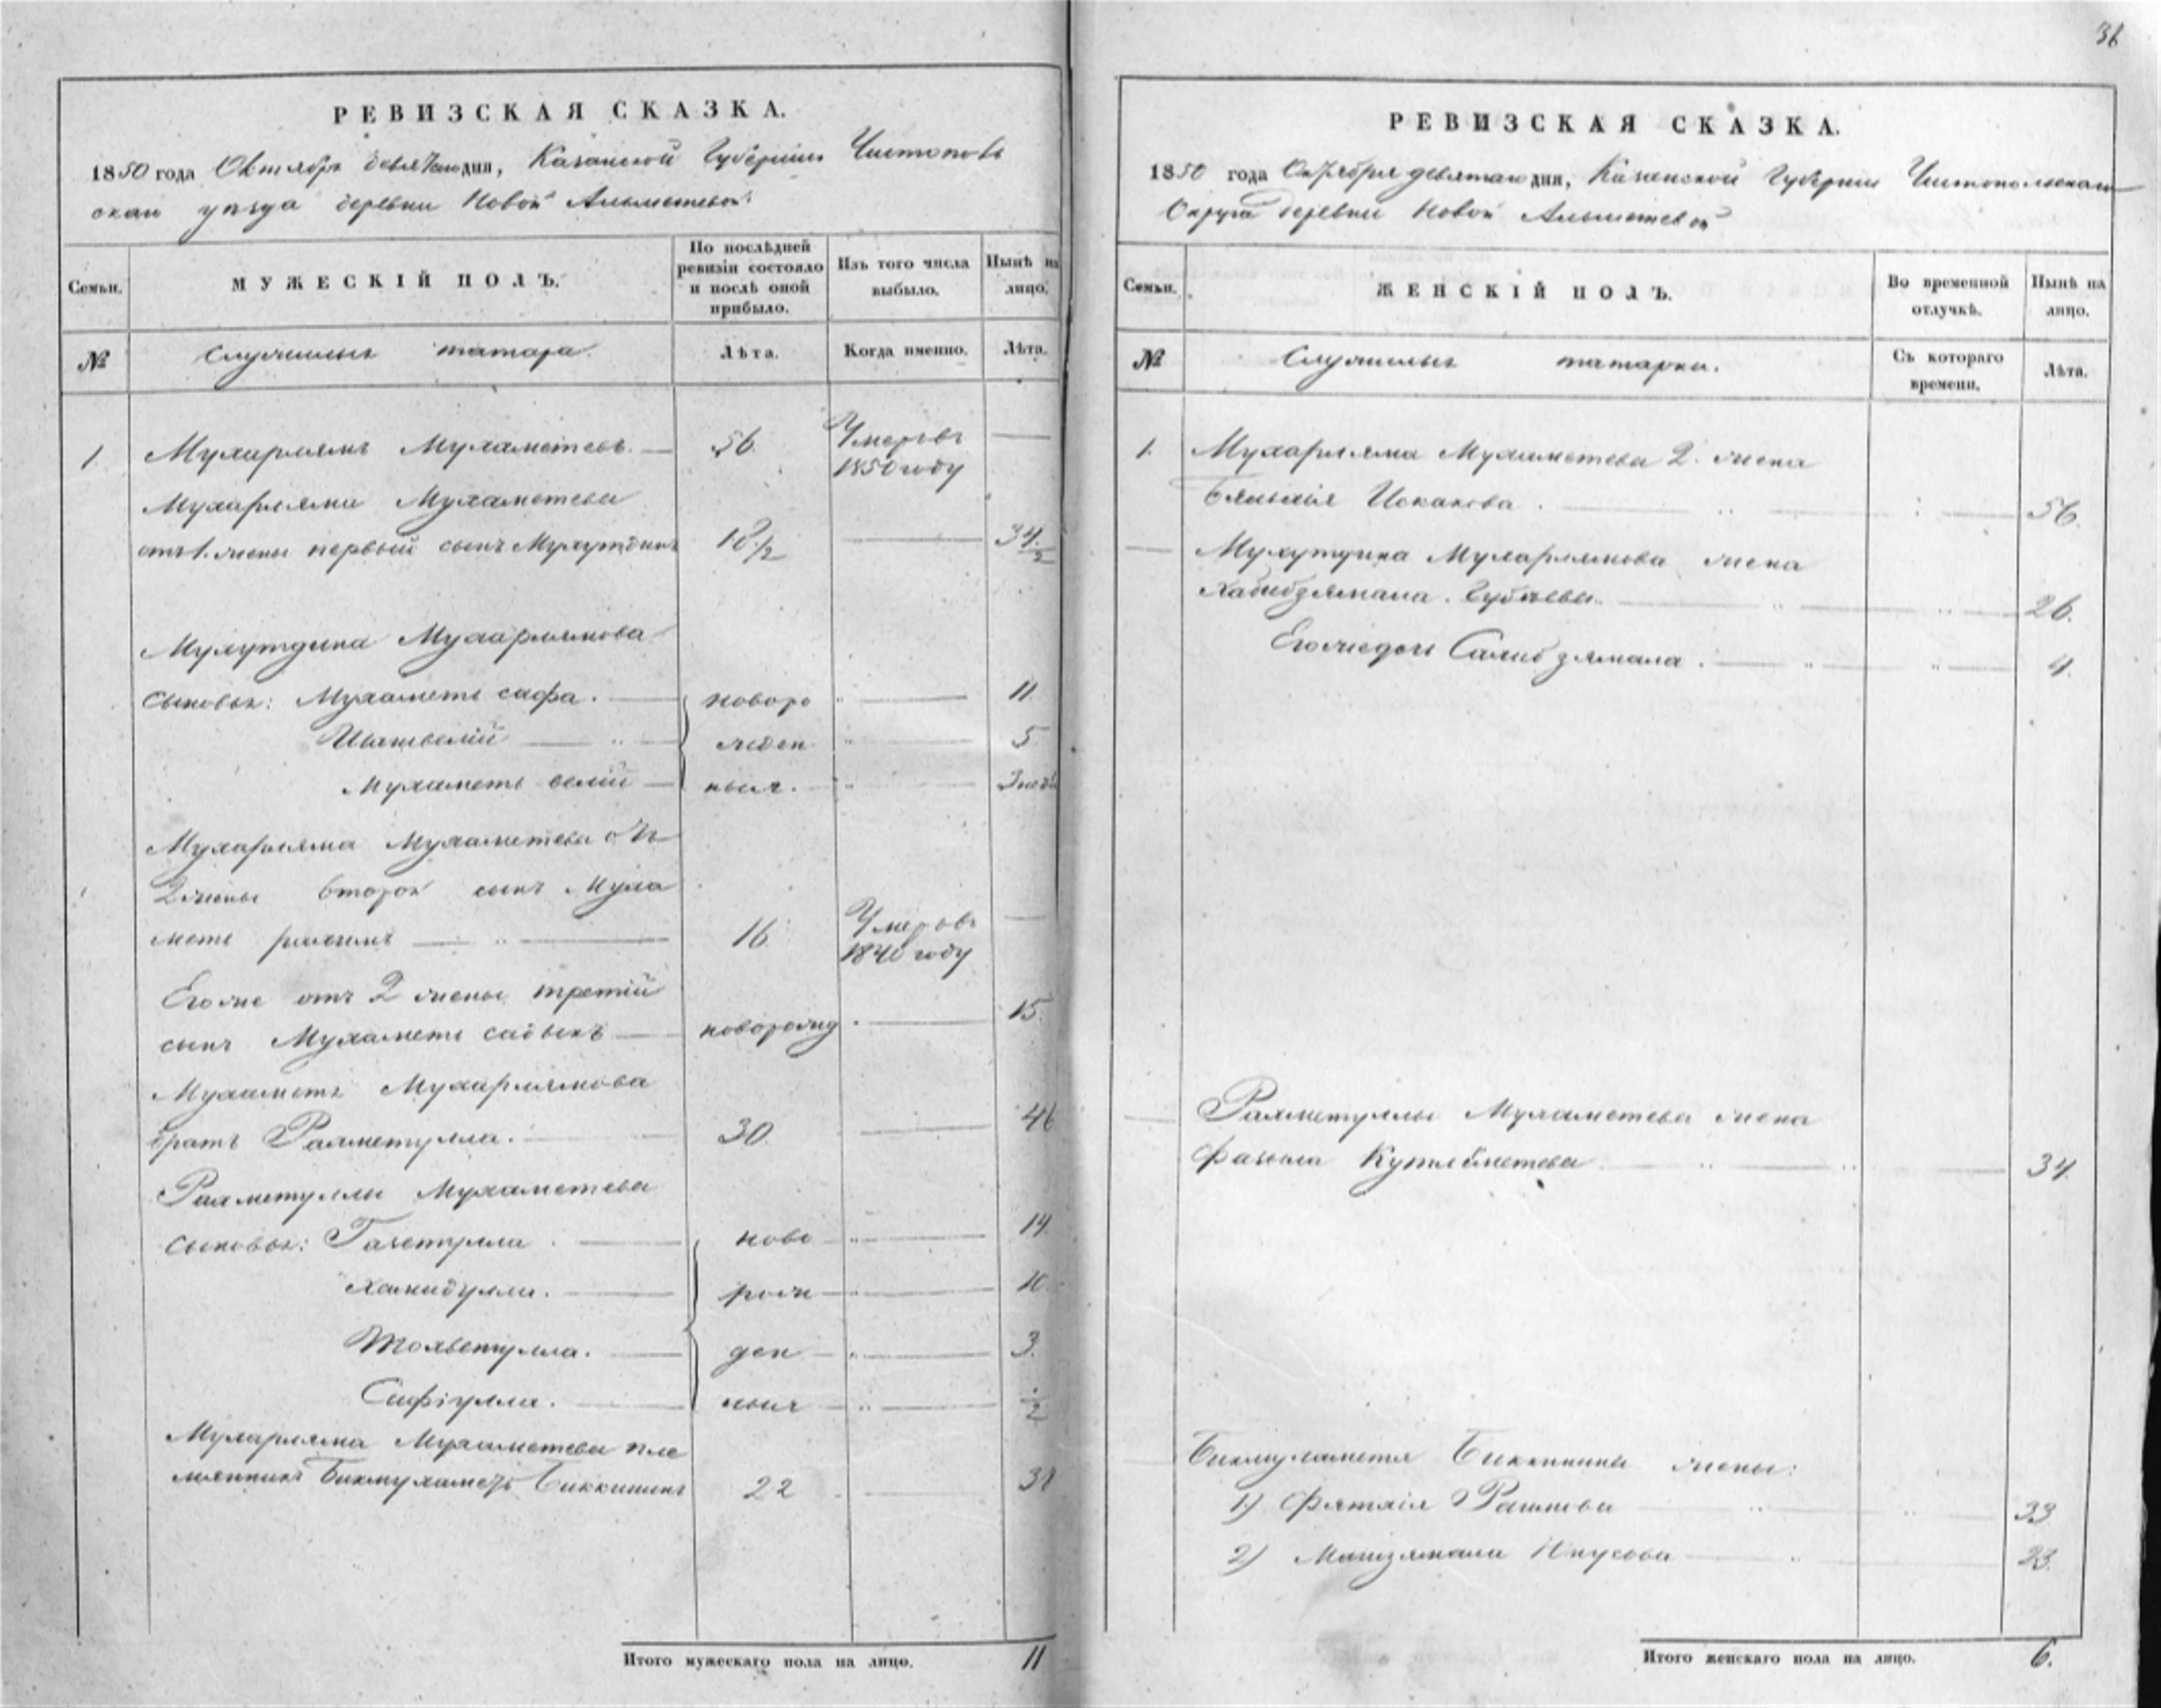 36
РЕВИЗСКАЯ СКАЗКА.
1850 года Октября девятаго дня, Казанской Губернiи Чистополь
скаго уѣзда деревни Новой Альметевой
Семьи.
МУЖЕСКІЙ ПОЛЪ.
По послѣдней ревизіи состояло и послѣ оной прибыло.
Изъ того числа выбыло.
Нынѣ на лицо.
№
Служилыхъ татаръ
Лѣта.
Когда именно.
Лѣта.
1 Мухарлямъ Мухаметевъ. 56. Умеръ въ
1850 году
Мухарляма Мухаметева
отъ 1. жены первый сынъ Мухутдинъ 18 1/2 34 1/2
Мухутдина Мухарлямова
сыновья: Мухаметь сафа. новоро 11
Шагивелій жден 5
Мухаметь велій ныя. 3 нед
Мухарляма Мухаметева отъ
2 жены второй сынъ Муха
меть рахимъ 16. Умеръ въ
1840 году
Егоже отъ 2 жены третій
сынъ Мухаметь садыкъ новорожд 15.
Мухаметъ Мухарлямова
братъ Рахметулла. 30 46
Рахметуллы Мухаметева
сыновья: Газетулла ново 14
Хамидулла. рож 10
Тохветулла. ден 3.
Сафіулла. ныя 1/2
Мухарляма Мухаметева пле
мянникъ Бикмухаметь Биккининъ 22 38
Итого мужескаго пола на лицо. 11
РЕВИЗСКАЯ СКАЗКА.
1850 года Октября девятаго дня, Казанской Губерніи Чистопольскаго
Округа деревни Новой Альметевой
Семьи.
ЖЕНСКІЙ ПОЛЪ.
Во временной отлучкѣ.
Нынѣ на лицо.
№
Служилыхъ татарки.
Съ котораго времени.
Лѣта.
1. Мухарляма Мухаметева 2. жена
Исхакова 56.
Мухутдина Мухарлямова жена
Хабибзямала. Губаева. 26.
Егожедочь Салибзямала. 4.
Рахметуллы Мухаметева жена
Фазыла Кутлбметева 34.
Бикмухаметя Биккинина жены:
1) Фатхія Рашитова 33
2) Магизямала Юнусова 23.
Итого женскаго пола на лицо. 6.